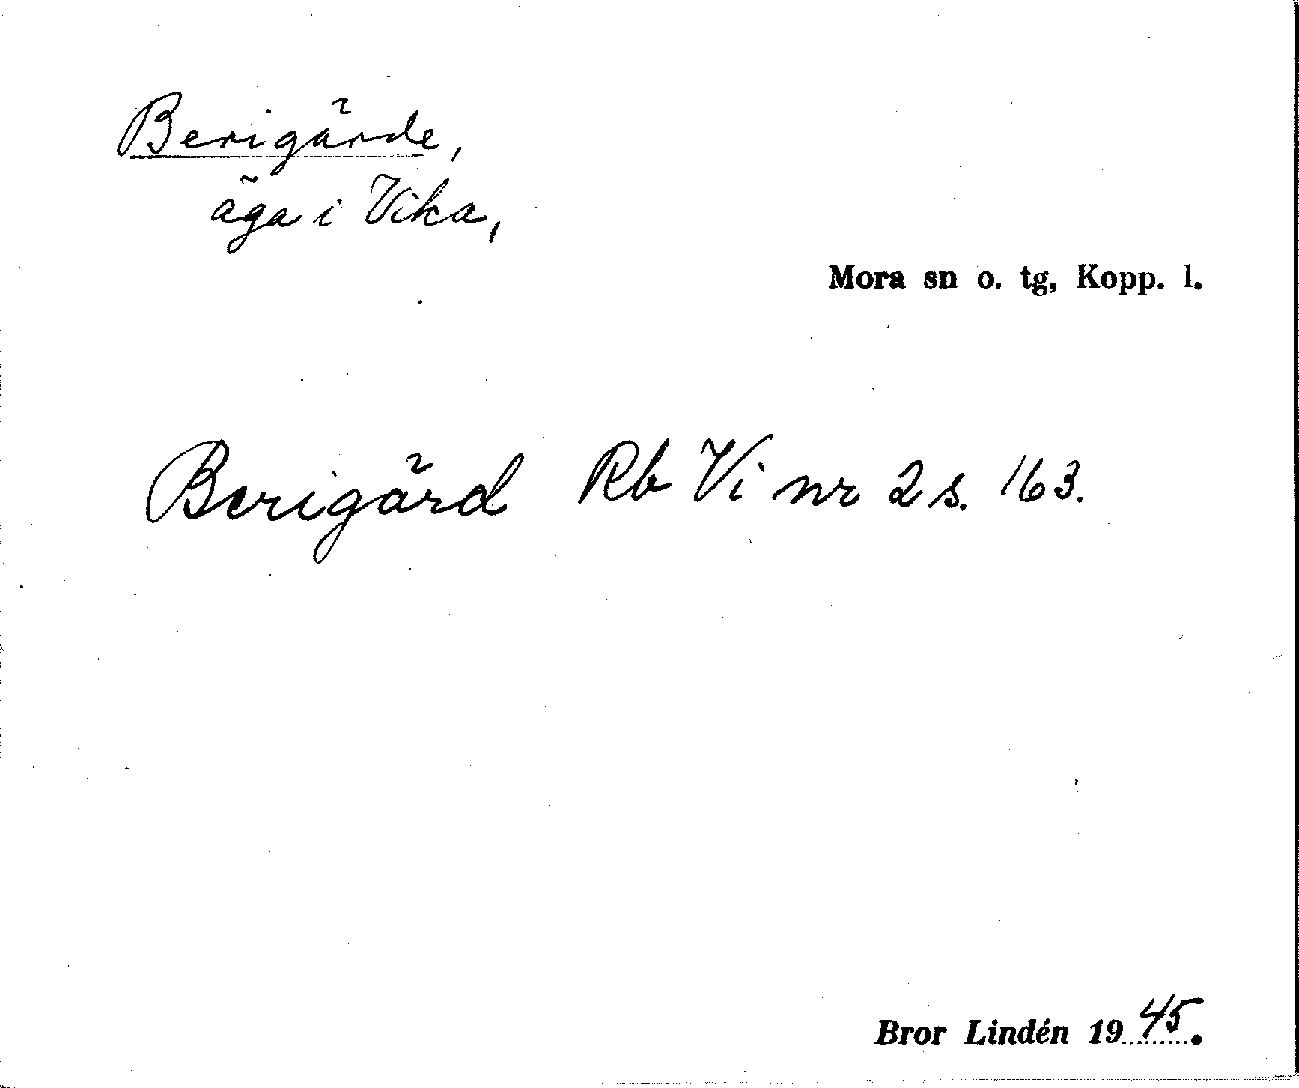 Berigärde,
äga i Vika,
Mora sn o. tg, Kopp. l.
Berigärd Rb Vi nr 2 s. 163.
Bror Lindén 1945.